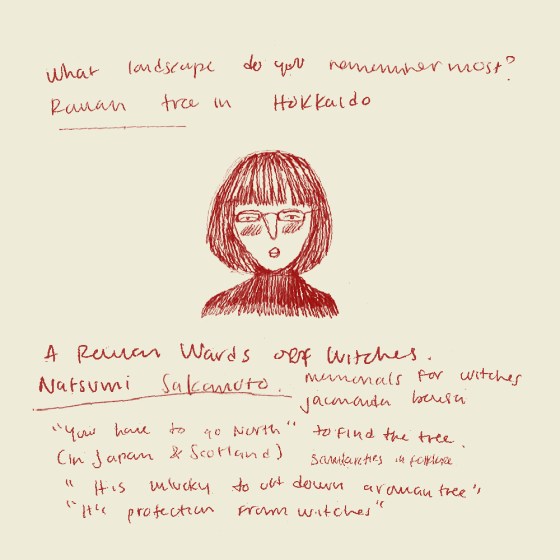 What landscape do you remember most?
Rowan tree in Hokkaido
A Rowan Wards off Witches.
Natsumi Sakamoto.
memorials for witches
jacaranda bonsai
"You have to go North" to find the tree.
(in Japan & Scotland) similarities in folklore
"It is unlucky to cut down a rowan tree"
"It's protection from witches"